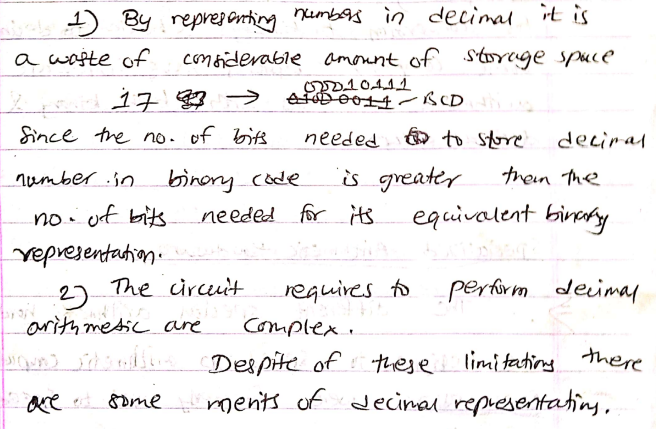 1) By representing numbers in decimal it is
a waste of considerable amount of storage space
17 → 00010111
- BCD
Since the no. of bits needed to store decimal
number in binary code is greater then the
no. of bits needed for its equivalent binary
representation.
2) The circuit requires to perform decimal
arithmetic are complex.
Despite of these limitations there
are some merits of decimal representations.